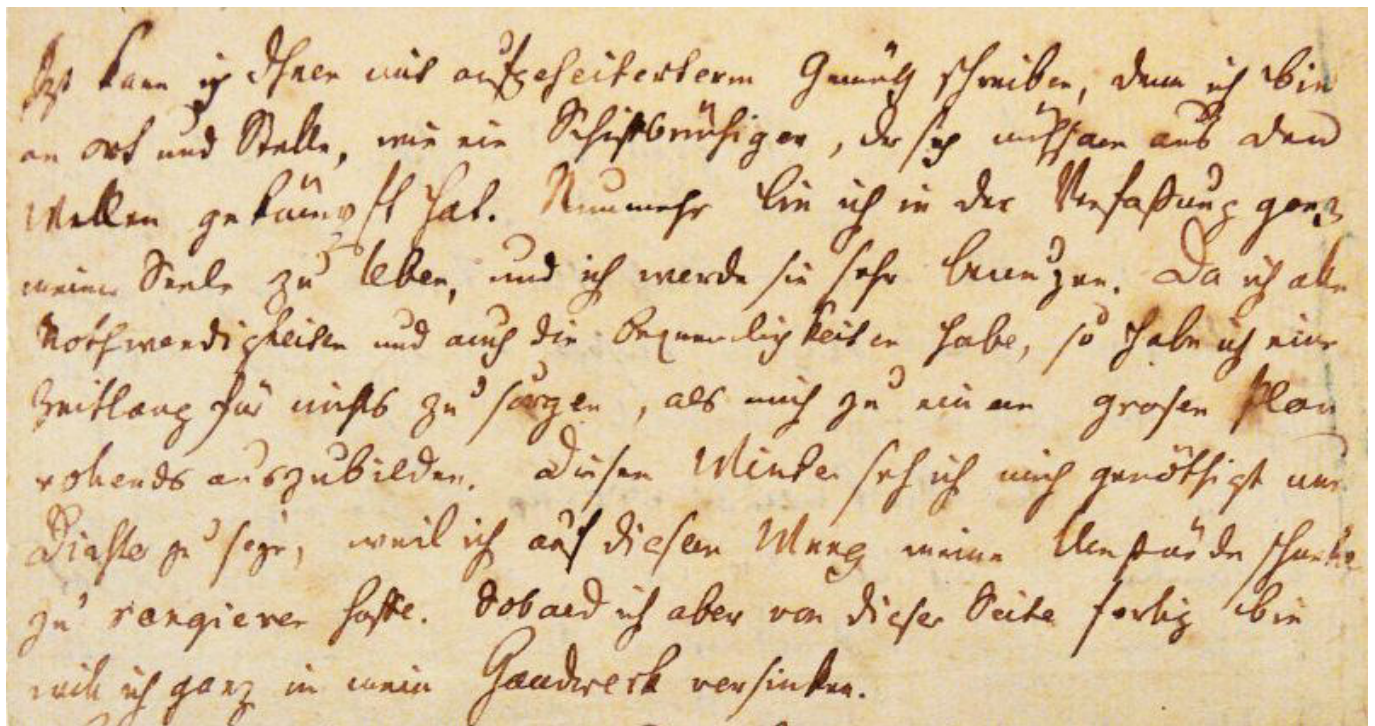 Jezt kann ich Ihnen mit aufgeheiterterm Gemüth schreiben, denn ich bin
an Ort und Stelle, wie ein Schiffbrüchiger, der sich mühsam aus den
Wellen gekämpft hat. Nunmehr bin ich in der Verfaßung ganz
meiner Seele zu leben, und ich werde sie sehr benuzen. Da ich alle
Nothwendigkeiten und auch die Bequemlichkeiten habe, so habe ich eine
Zeitlang für nichts zu sorgen, als mich zu einem grosen Plan
vollends auszubilden. Diesen Winter seh ich mich genöthigt nur
Dichter zu seyn, weil ich auf diesem Weeg meine Umstände schneller
zu rangieren hoffe. Sobald ich aber von dieser Seite fertig bin
will ich ganz in mein Handwerk versinken.